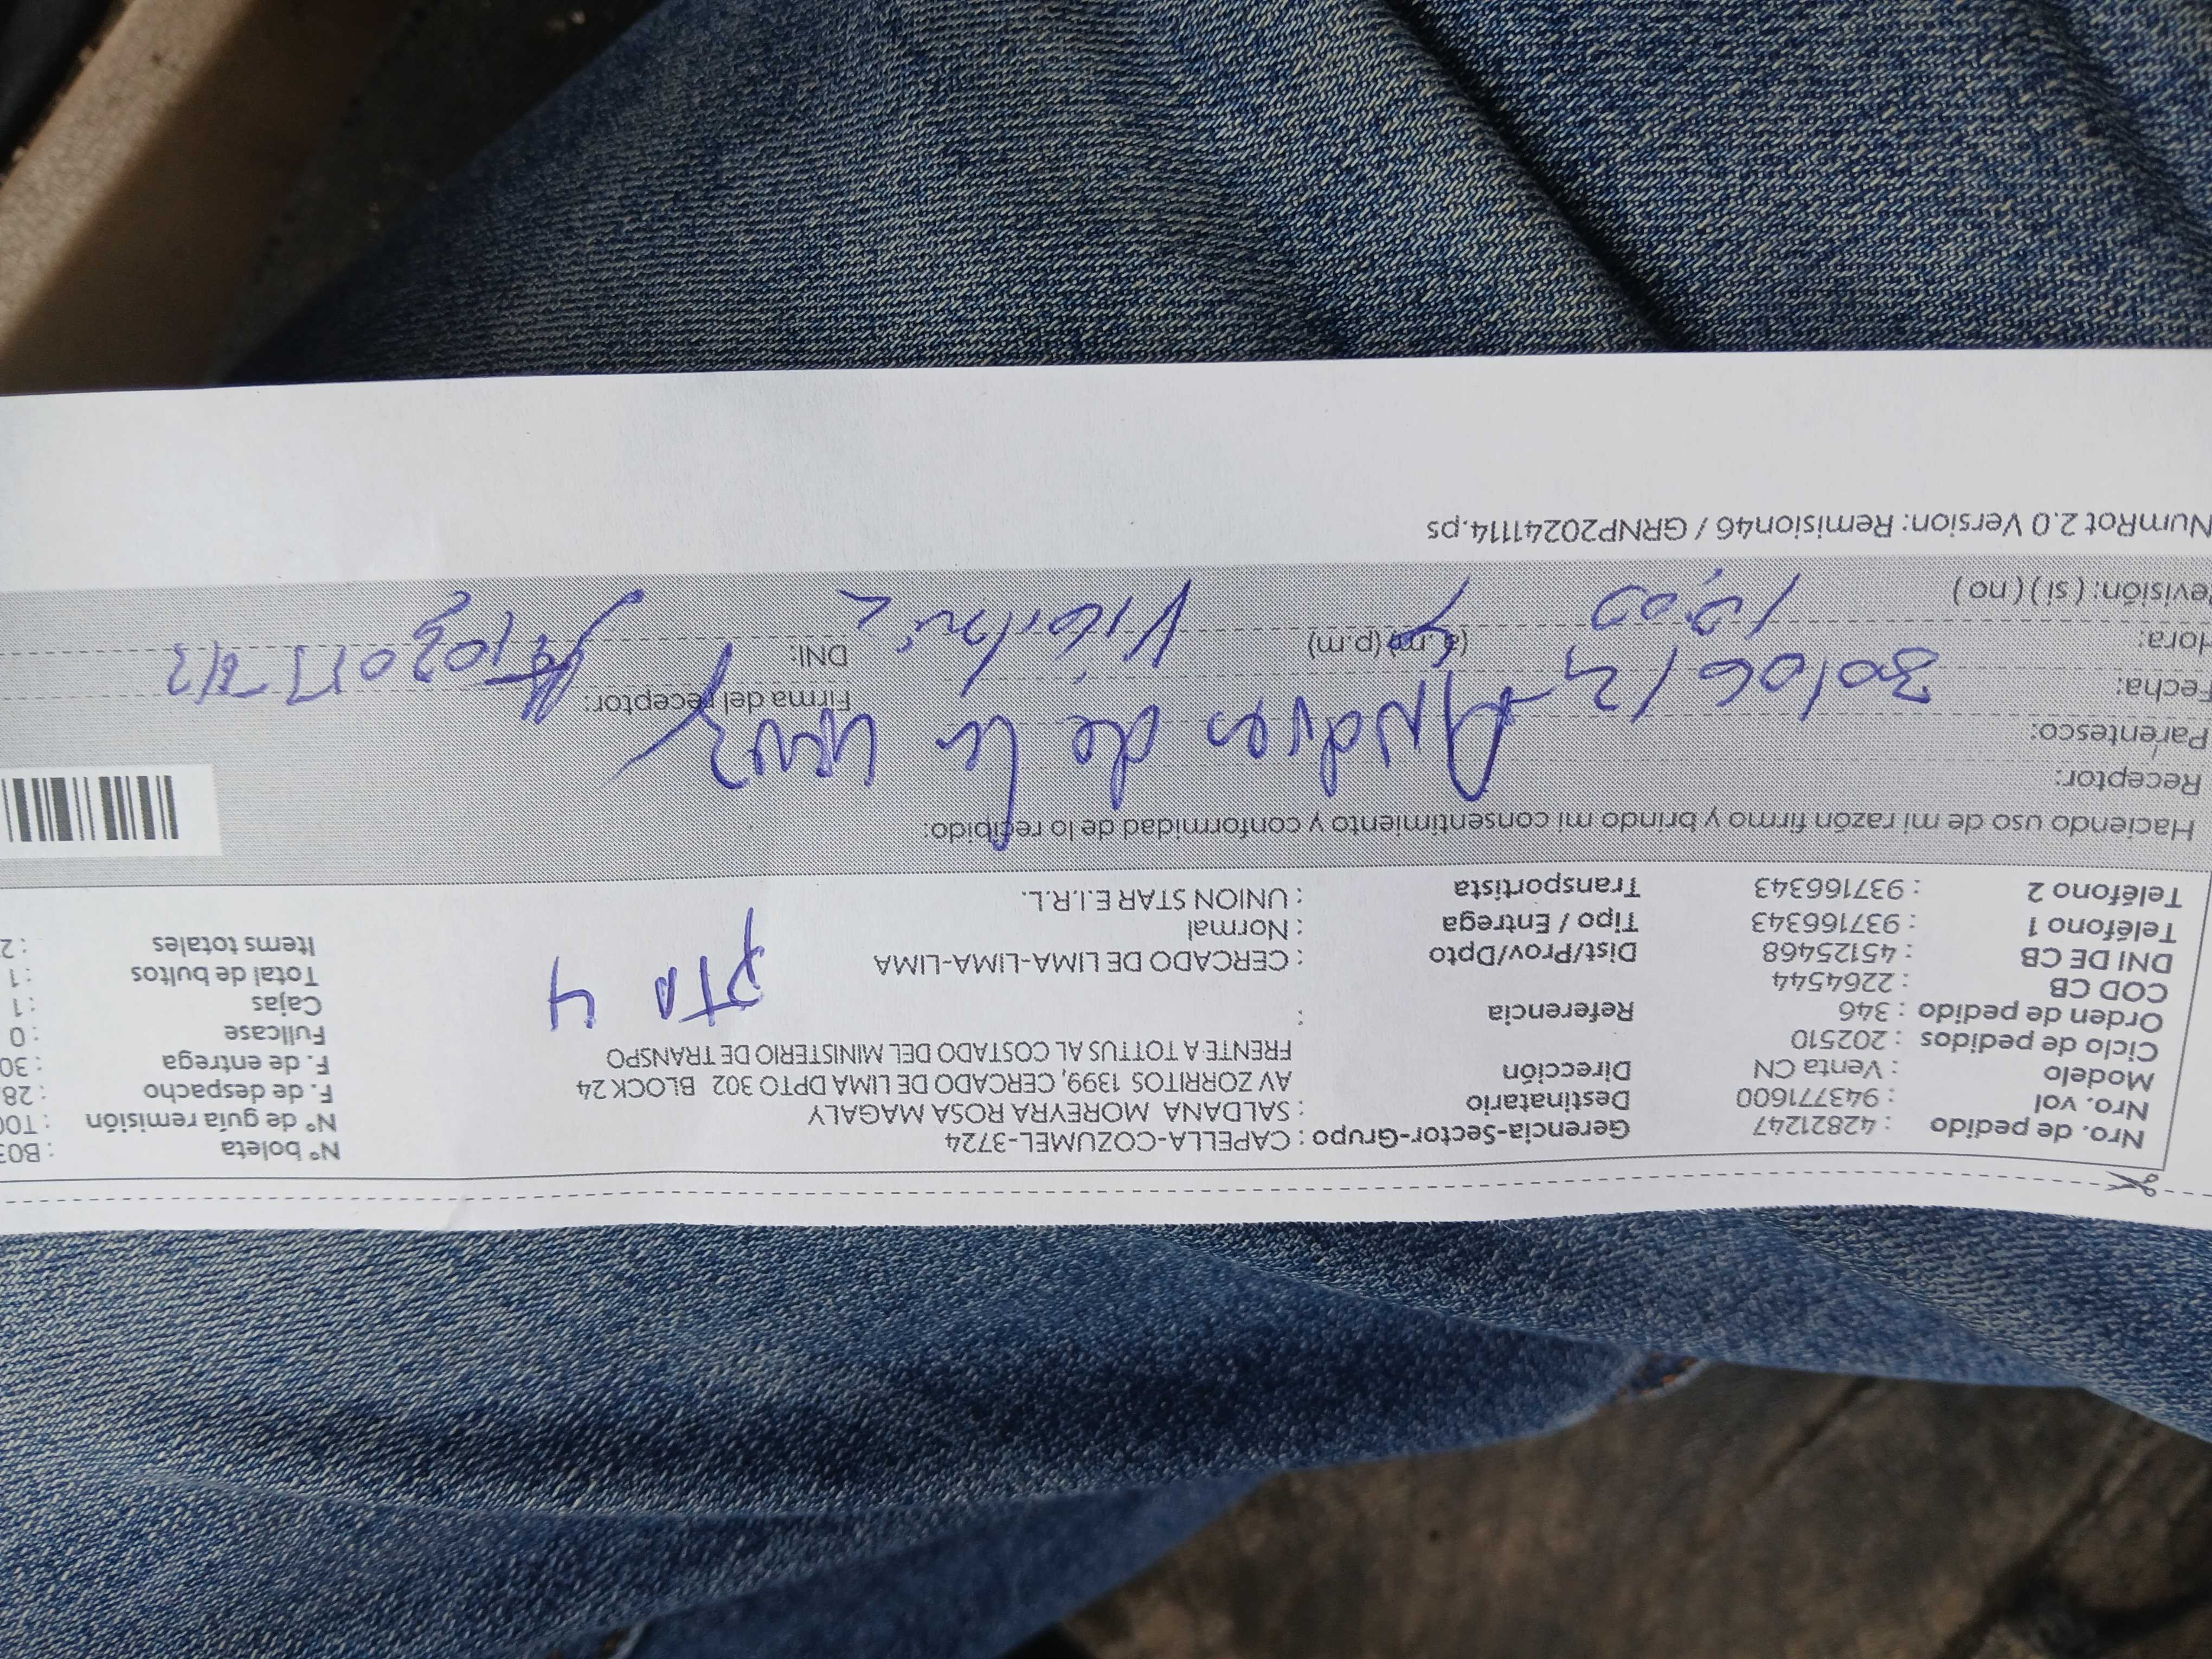 Nro. de pedido : 42821247 Gerencia-Sector-Grupo : CAPELLA-COZUMEL-3724 N° boleta : B03
Nro. vol : 943771600 Destinatario : SALDANA MOREYRA ROSA MAGALY N° de guía remisión : T00
Modelo : Venta CN Dirección AV ZORRITOS 1399, CERCADO DE LIMA DPTO 302 BLOCK 24 F. de despacho : 28
Ciclo de pedidos : 202510 FRENTE A TOTTUS AL COSTADO DEL MINISTERIO DE TRANSPO F. de entrega : 30
Orden de pedido : 346 Referencia : Fullcase : 0
COD CB : 2264544 PTA 4 Cajas : 1
DNI DE CB : 45125468 Dist/Prov/Dpto : CERCADO DE LIMA-LIMA-LIMA Total de bultos : 1
Teléfono 1 : 937166343 Tipo / Entrega : Normal Items totales : 2
Teléfono 2 : 937166343 Transportista : UNION STAR E.I.R.L.
Haciendo uso de mi razón firmo y brindo mi consentimiento y conformidad de lo recibido:
Receptor: Andres de la
Parentesco: Firma del receptor:
Fecha: 30/06/
Hora: (a.m) (p.m) DNI:
Revisión: ( si ) ( no )
NumRot 2.0 Version: Remision46 / GRNP20241114.ps